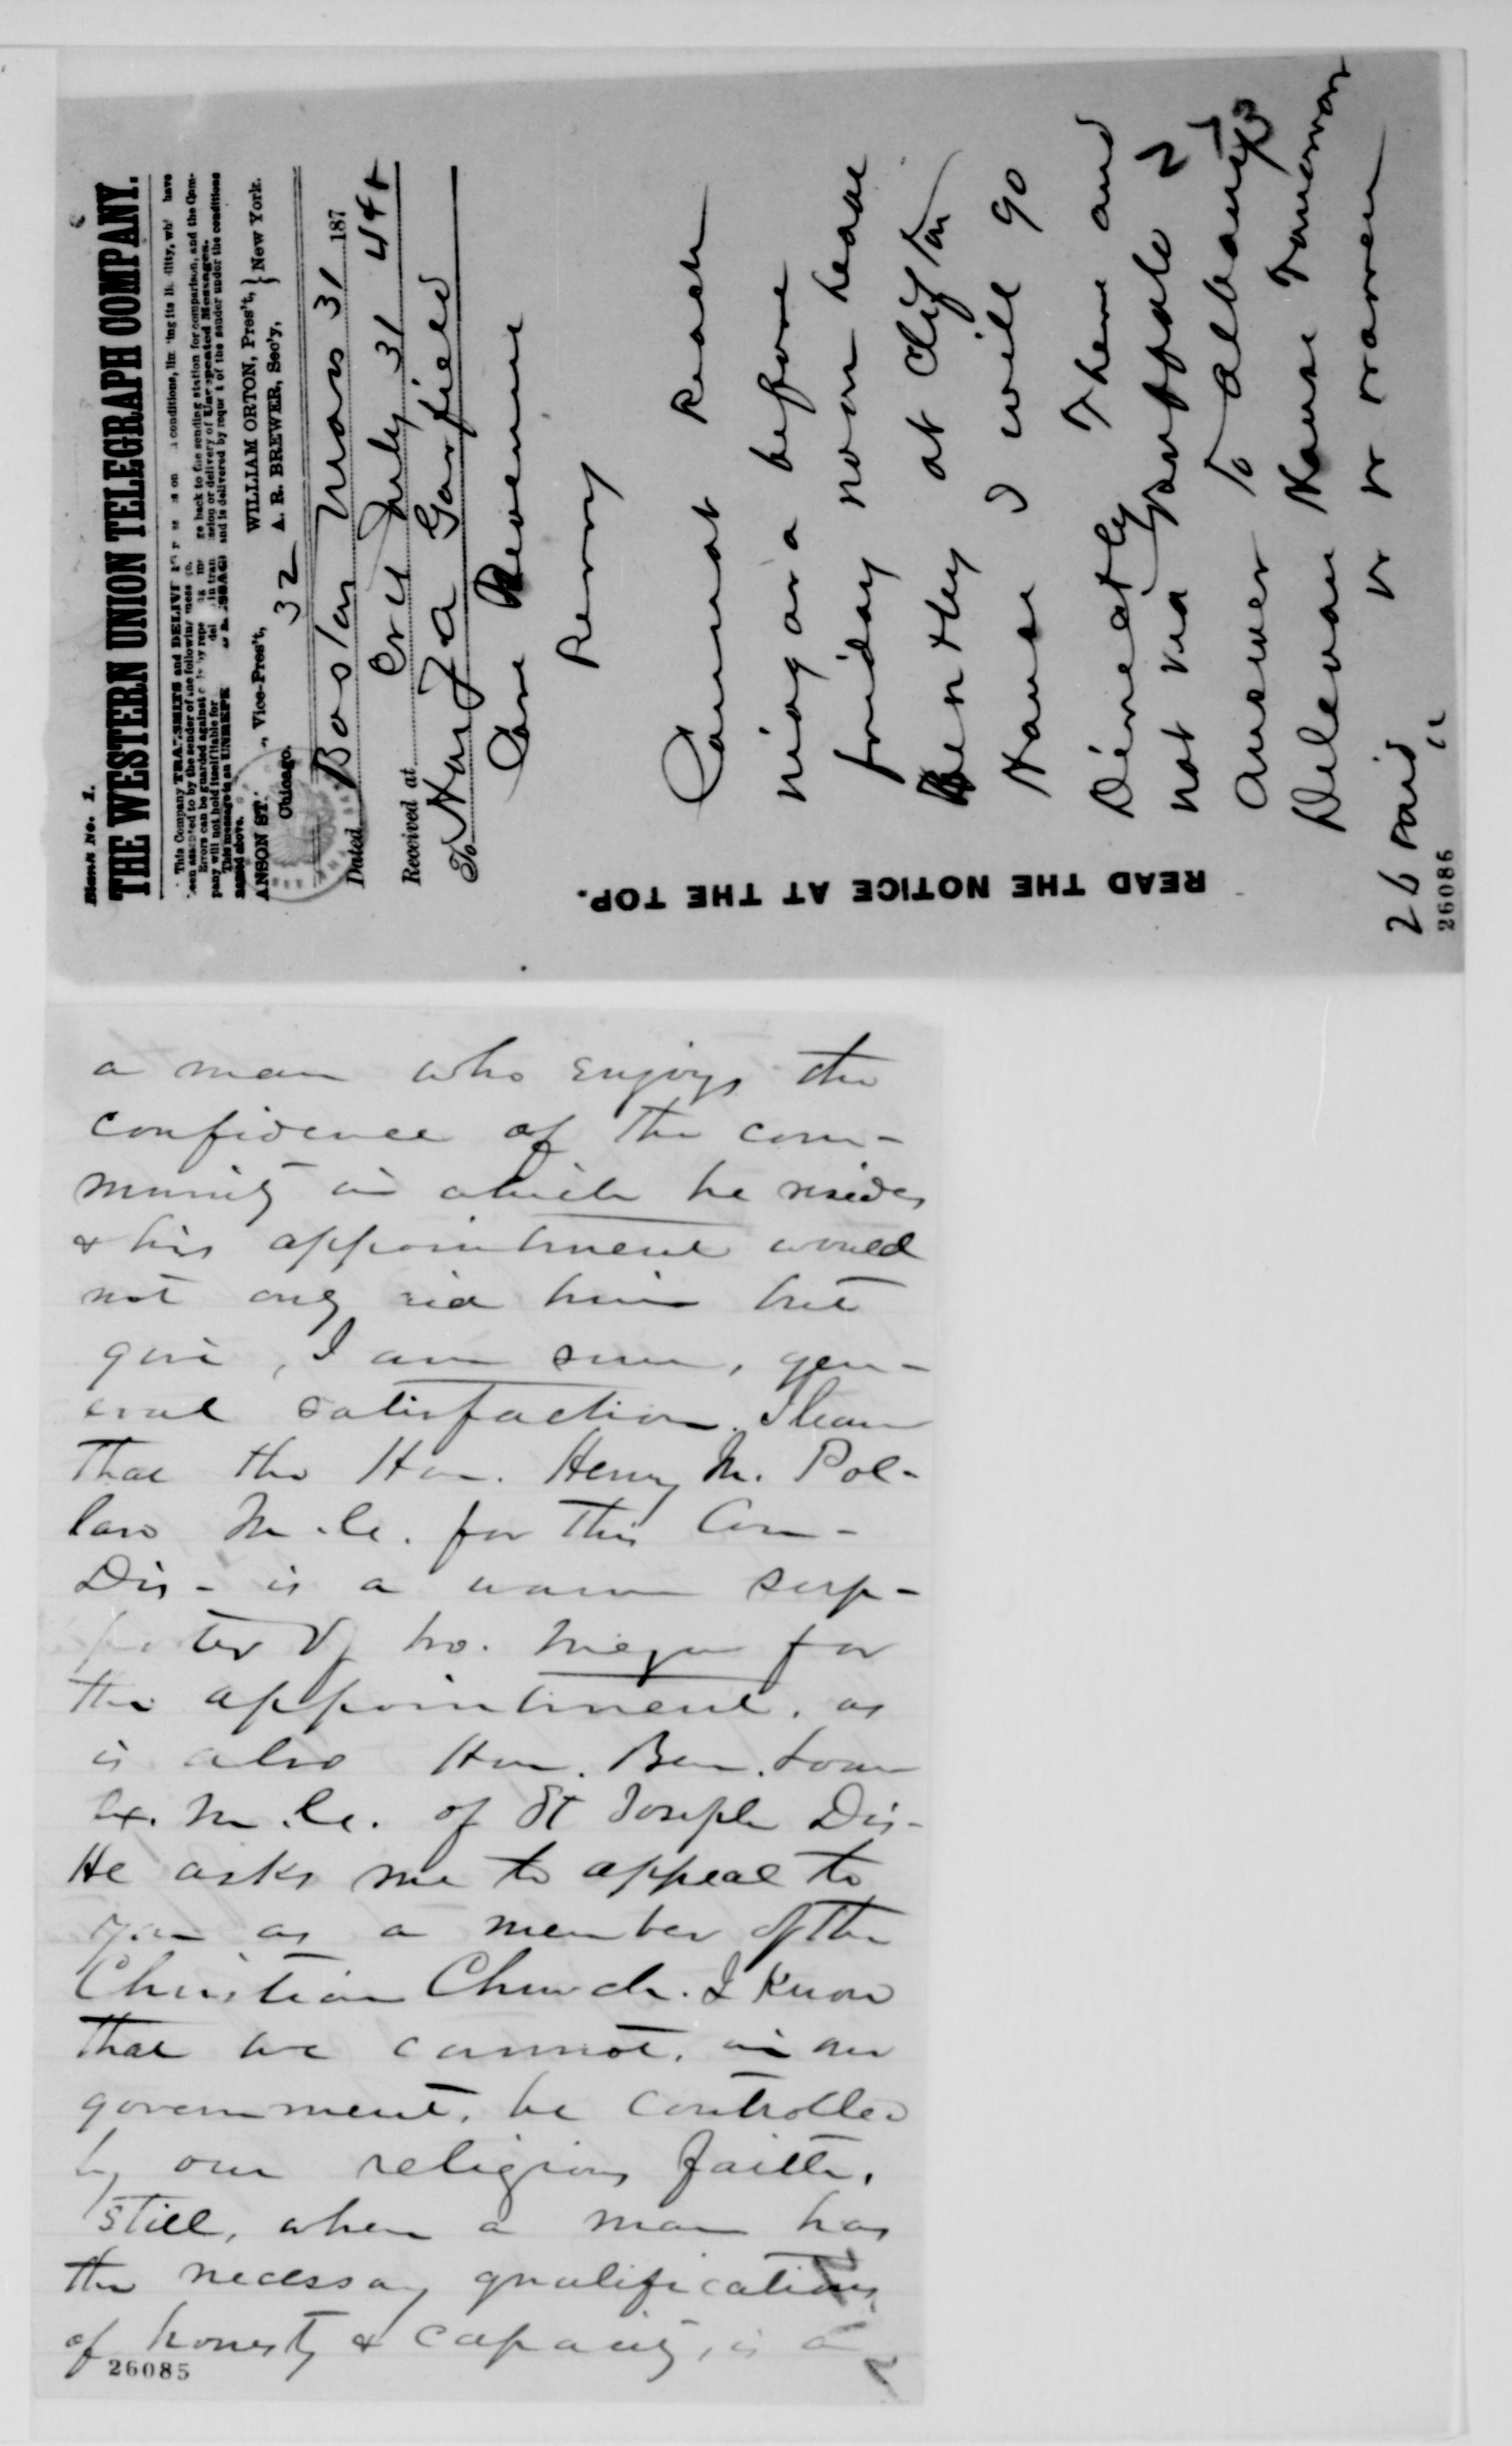 Blank No. 1.
THE WESTERN UNION TELEGRAPH COMPANY.
This Company TRANSMITS and DELIVERS conditions, limiting its liability, which have
been assented to by the sender of the following message
Errors can be guarded against only by repeating a message back to the sending station for comparison, and the Com-
pany will not hold itself liable for in transmission or delivery of Unrepeated Messages.
This message is an UNREPEATED MESSAGE and is delivered by request of the sender under the conditions
named above.
ANSON ST. , Vice-Pres't, WILLIAM ORTON, Pres't, } New York.
Chicago. A. R. BREWER, Sec'y,
32
Dated Boston Mass 31 187
Received at July 31 444
To Hon J A Garfield
Care
Perry
Cannot reach
niagara before
friday noon have
Bentley at Clifton
House I will go
Directly There and
not via 2
answer To albany
Delevan House Tomorrow
26 paid
READ THE NOTICE AT THE TOP.
26086
a man who enjoys the
confidence of the com-
munity in which he resides
& his appointment would
not only aid him but
give, I am sure, gen-
eral satisfaction. I learn
that the Hon. Henry M. Pol-
lard M.C. for this Con-
Dis- is a warm sup-
porter of for
the appointment, as
is also Hon. Ben. Loan
Ex. M.C. of St Joseph Dis-
He asks me to appeal to
you as a member of the
Christian Church. I know
that we cannot, in our
government, be controlled
by our religious faith,
still, when a man has
the necessary qualifications
of honesty & capacity, is a
26085